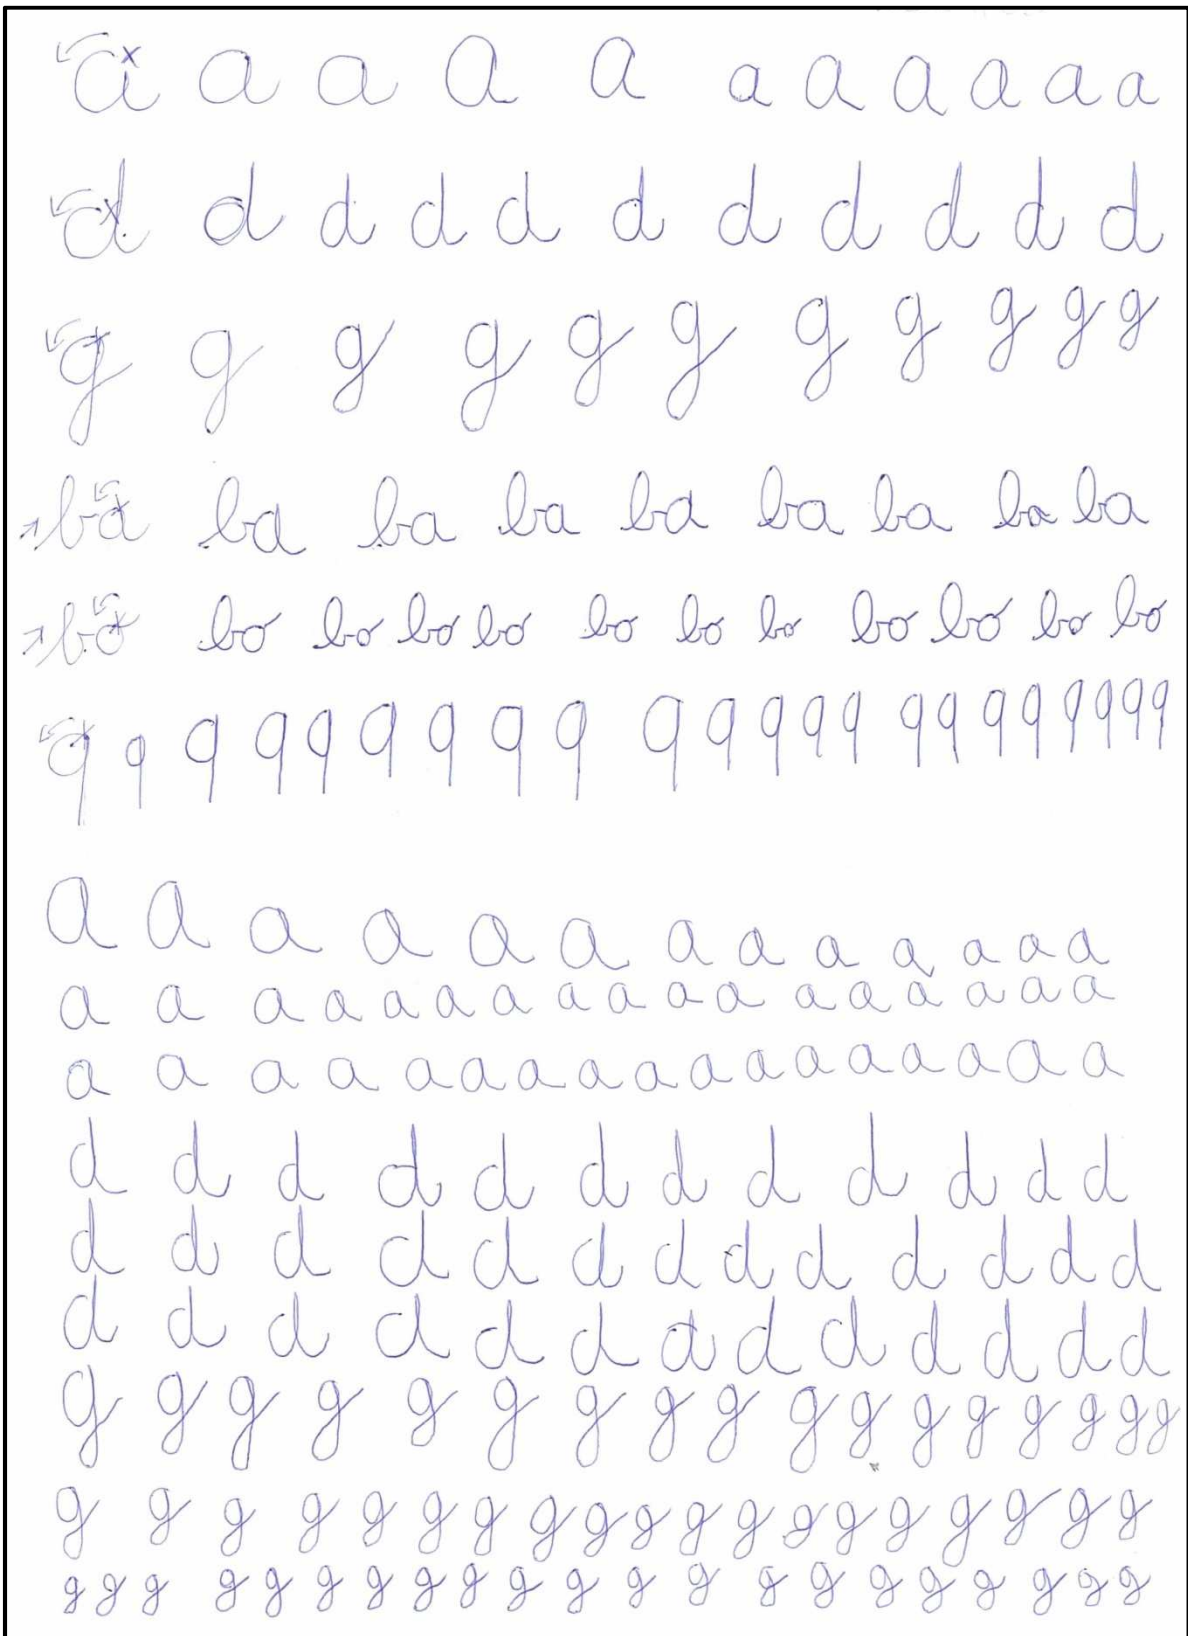 a a a a a a a a a a a
d d d d d d d d d d d
g g g g g g g g g g g
ba ba ba ba ba ba ba ba ba
bo bo bo bo bo bo bo bo bo bo bo bo
q q q q q q q q q q q q q q q q q q q q q q
a a a a a a a a a a a a a
a a a a a a a a a a a a a a a a a
a a a a a a a a a a a a a a a a
d d d d d d d d d d d d
d d d d d d d d d d d d d
d d d d d d d d d d d d d
g g g g g g g g g g g g g g g g g
g g g g g g g g g g g g g g g g g g g
g g g g g g g g g g g g g g g g g g g g g